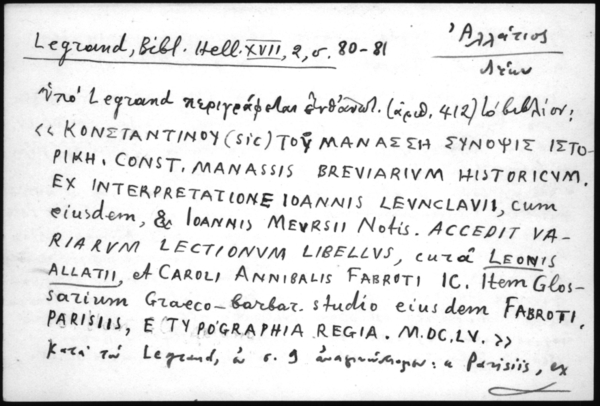 Legrand, Bibl. Hell. XVII, 2, σ. 80-81
Ἀλλάτιος
Λέων
Ὑπὸ Legrand περιγράφεται (ἀριθ. 412) τὸ βιβλίον:
« ΚΟΝΣΤΑΝΤΙΝΟΥ (sic) ΤΟΥ ΜΑΝΑΣΣΗ ΣΥΝΟΨΙΣ ΙΣΤΟ-
ΡΙΚΗ. CONST. MANASSIS BREVIARIVM HISTORICVM.
EX INTERPRETATIONE IOANNIS LEVNCLAVII, cum
eiusdem, & IOANNIS MEVRSII Notis. ACCEDIT VA-
RIARVM LECTIONVM LIBELLVS, curâ LEONIS
ALLATII, et CAROLI ANNIBALIS FABROTI IC. Item Glos-
sarium Graeco-barbar. studio eiusdem FABROTI.
PARISIIS, E TYPOGRAPHIA REGIA. M.DC.LV. »
Κατὰ τὸν Legrand, ἐν σ. 9 ἀναγινώσκομεν: « Parisiis, ex